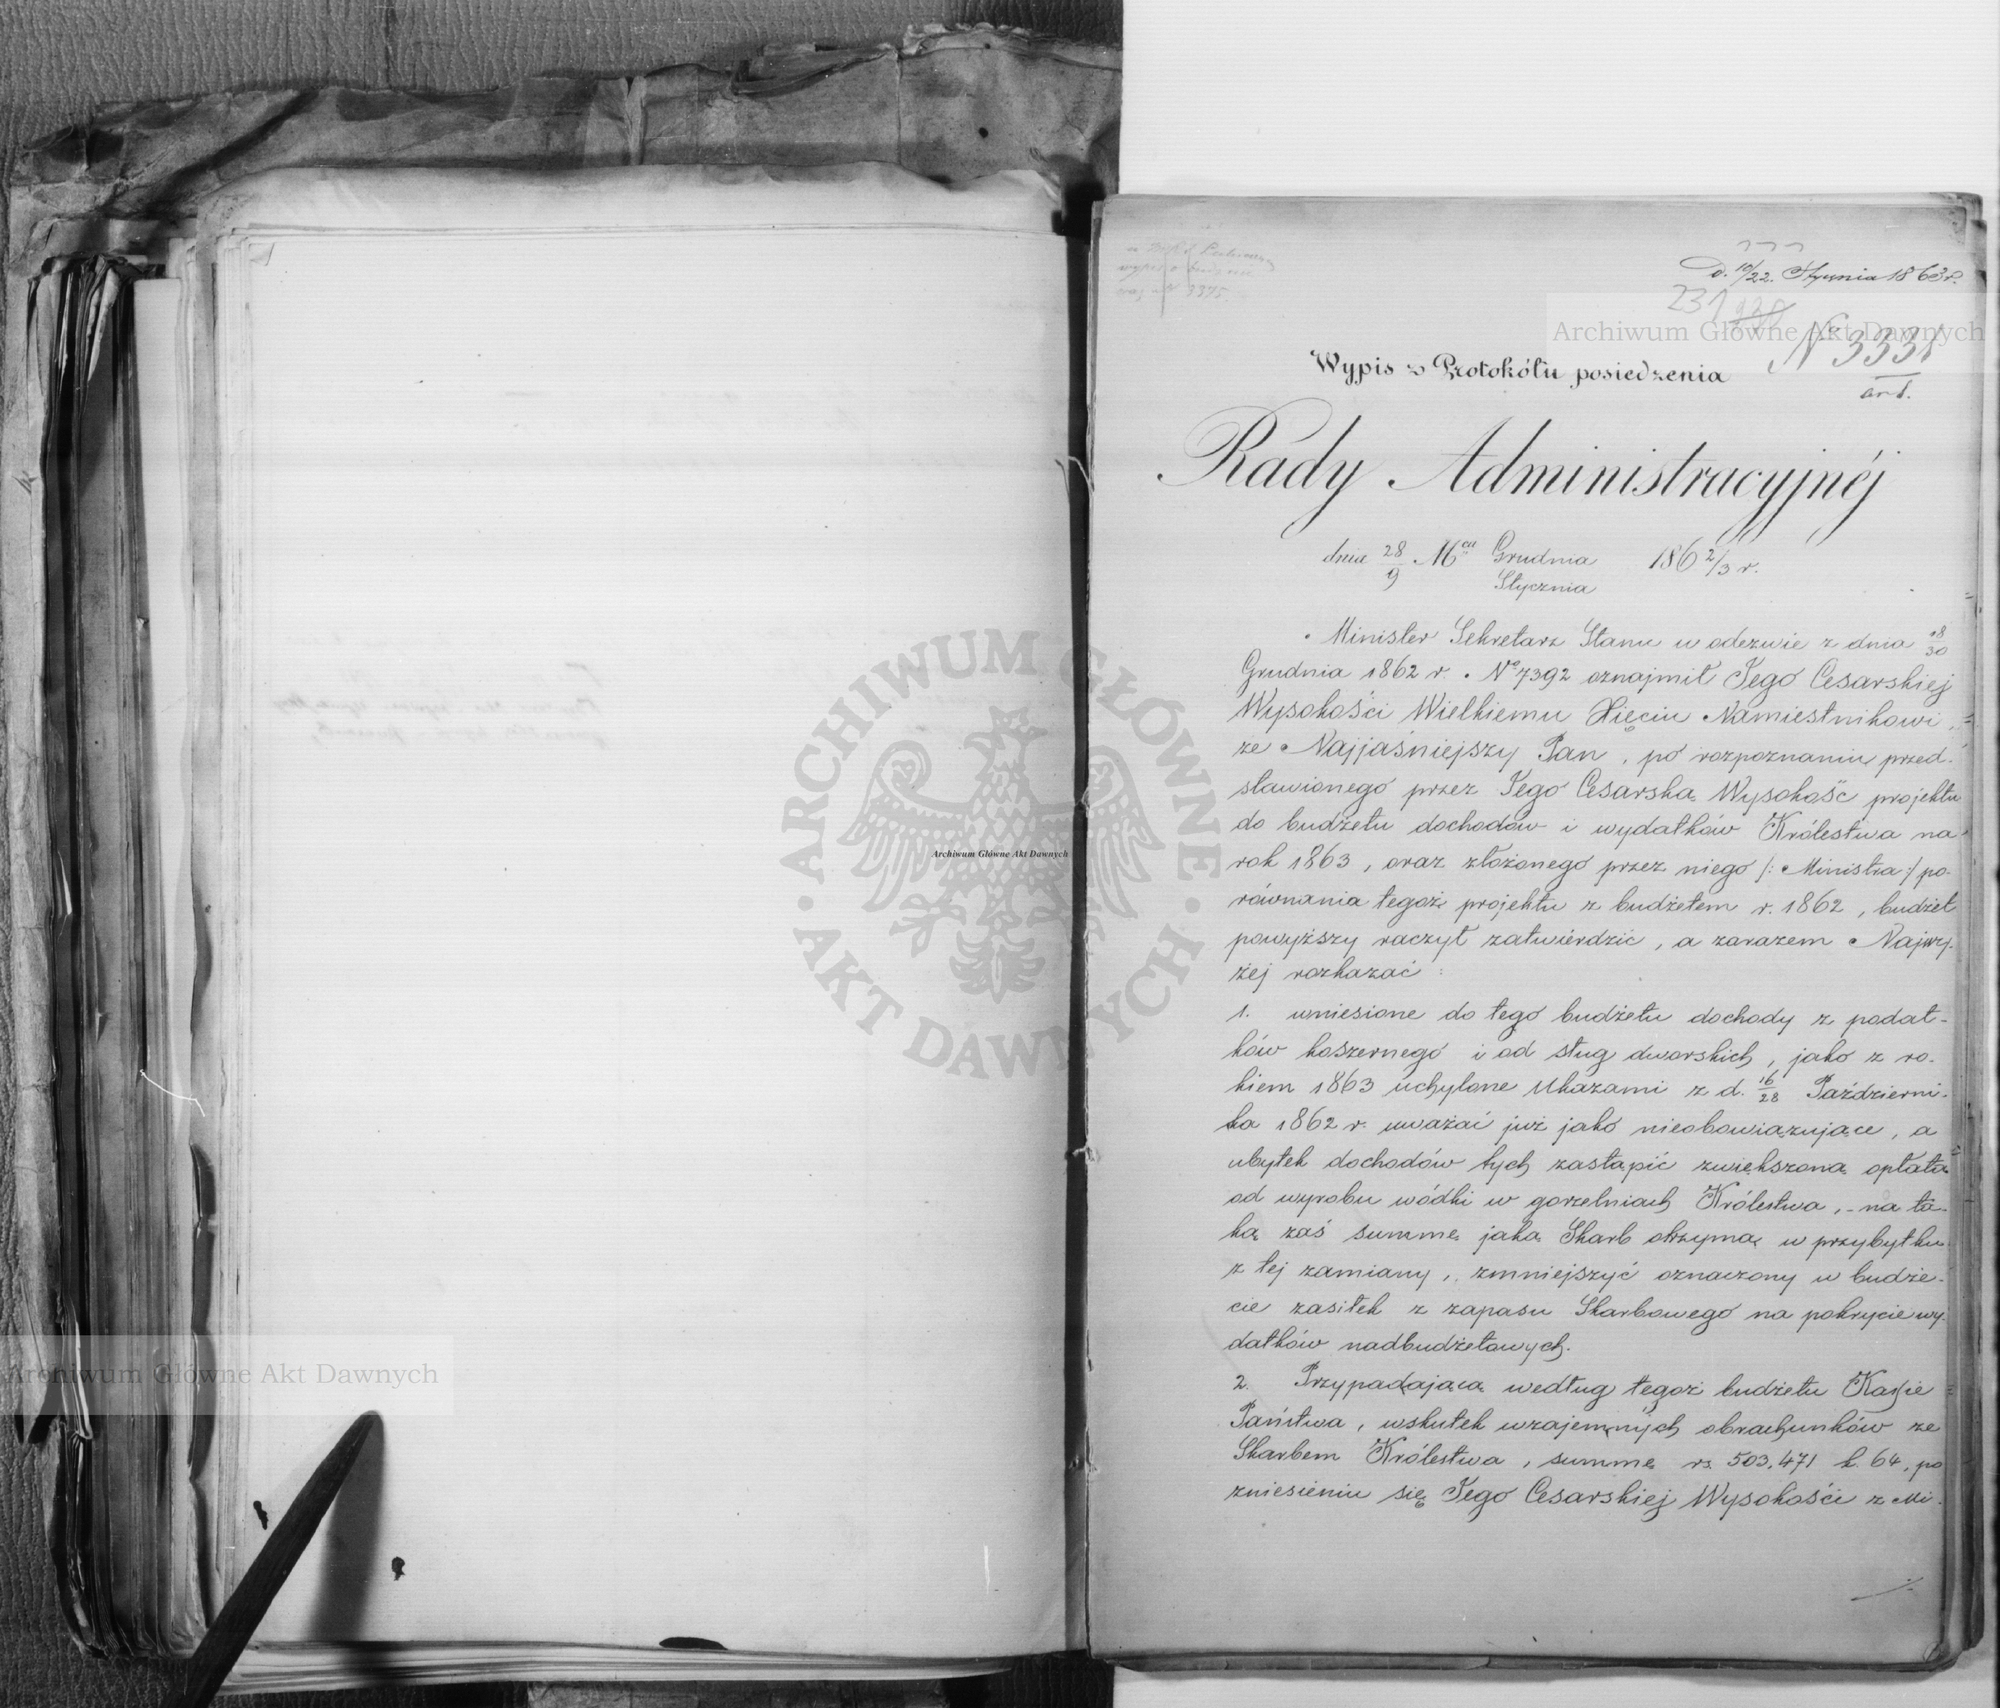 D. 10/22. Stycznia 1863 r.
231
Archiwum Główne Akt Dawnych
Nº 3331
Wypis z Protokółu posiedzenia
ad.
Rady Administracyjnéj
dnia 28/9 Mca Grudnia 186 2/3 r.
Stycznia
Minister Sekretarz Stanu w odezwie z dnia 18/30
Grudnia 1862 r. Nº 7392 oznajmił Jego Cesarskiej
Wysokości Wielkiemu Xięciu Namiestnikowi,
że Najjaśniejszy Pan, po rozpoznaniu przed-
stawionego przez Jego Cesarską Wysokość projektu
do budżetu dochodów i wydatków Królestwa na
rok 1863, oraz złożonego przez niego /: Ministra :/ po-
równania tegoż projektu z budżetem r. 1862, budżet
powyższy raczył zatwierdzić, a zarazem Najwy-
żej rozkazać:
1. wniesione do tego budżetu dochody z podat-
ków koszernego i od sług dworskich, jako z ro-
kiem 1863 uchylone Ukazami z d. 16/28 Październi-
ka 1862 r. uważać już jako nieobowiązujące, a
ubytek dochodów tych zastąpić zwiększoną opłatą
od wyrobu wódki w gorzelniach Królestwa, - na ta-
ką zaś summę jaką Skarb otrzyma w przybytku
z tej zamiany, zmniejszyć oznaczony w budże-
cie zasiłek z zapasu Skarbowego na pokrycie wy-
datków nadbudżetowych.
2. Przypadającą według tegoż budżetu Kassie
Państwa, wskutek wzajemnych obrachunków ze
Skarbem Królestwa, summę rs 503,471 k. 64, po
zniesieniu się Jego Cesarskiej Wysokości z Mi-
ARCHIWUM GŁÓWNE
AKT DAWNYCH
Archiwum Główne Akt Dawnych
Archiwum Główne Akt Dawnych